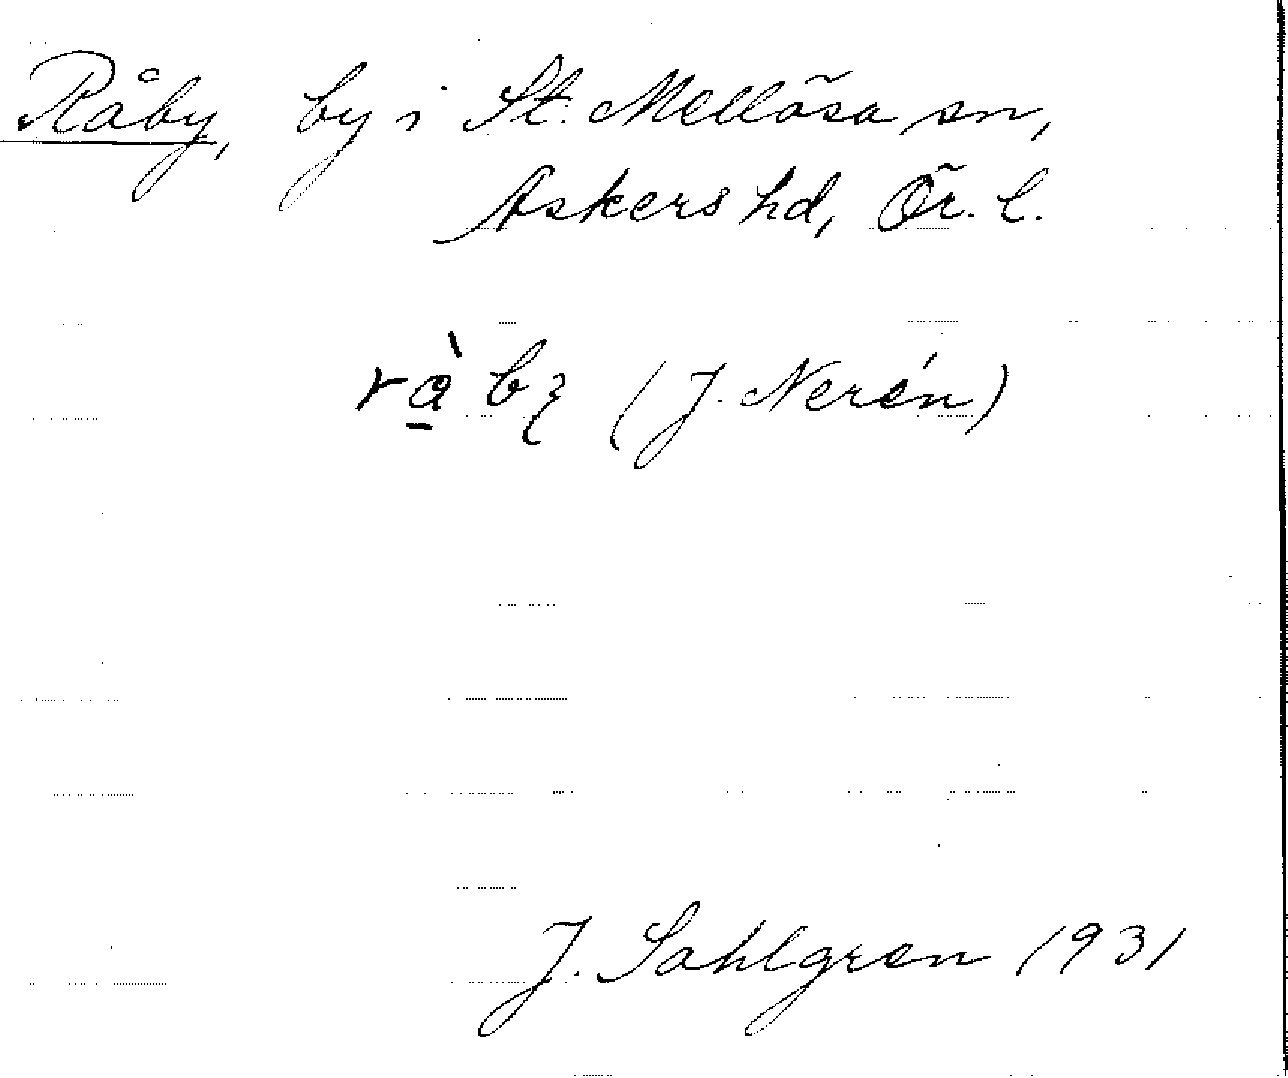 Råby, by i St. Mellösa sn,
Askers hd, Ör. l.
(J. Nerén)
J. Sahlgren 1931